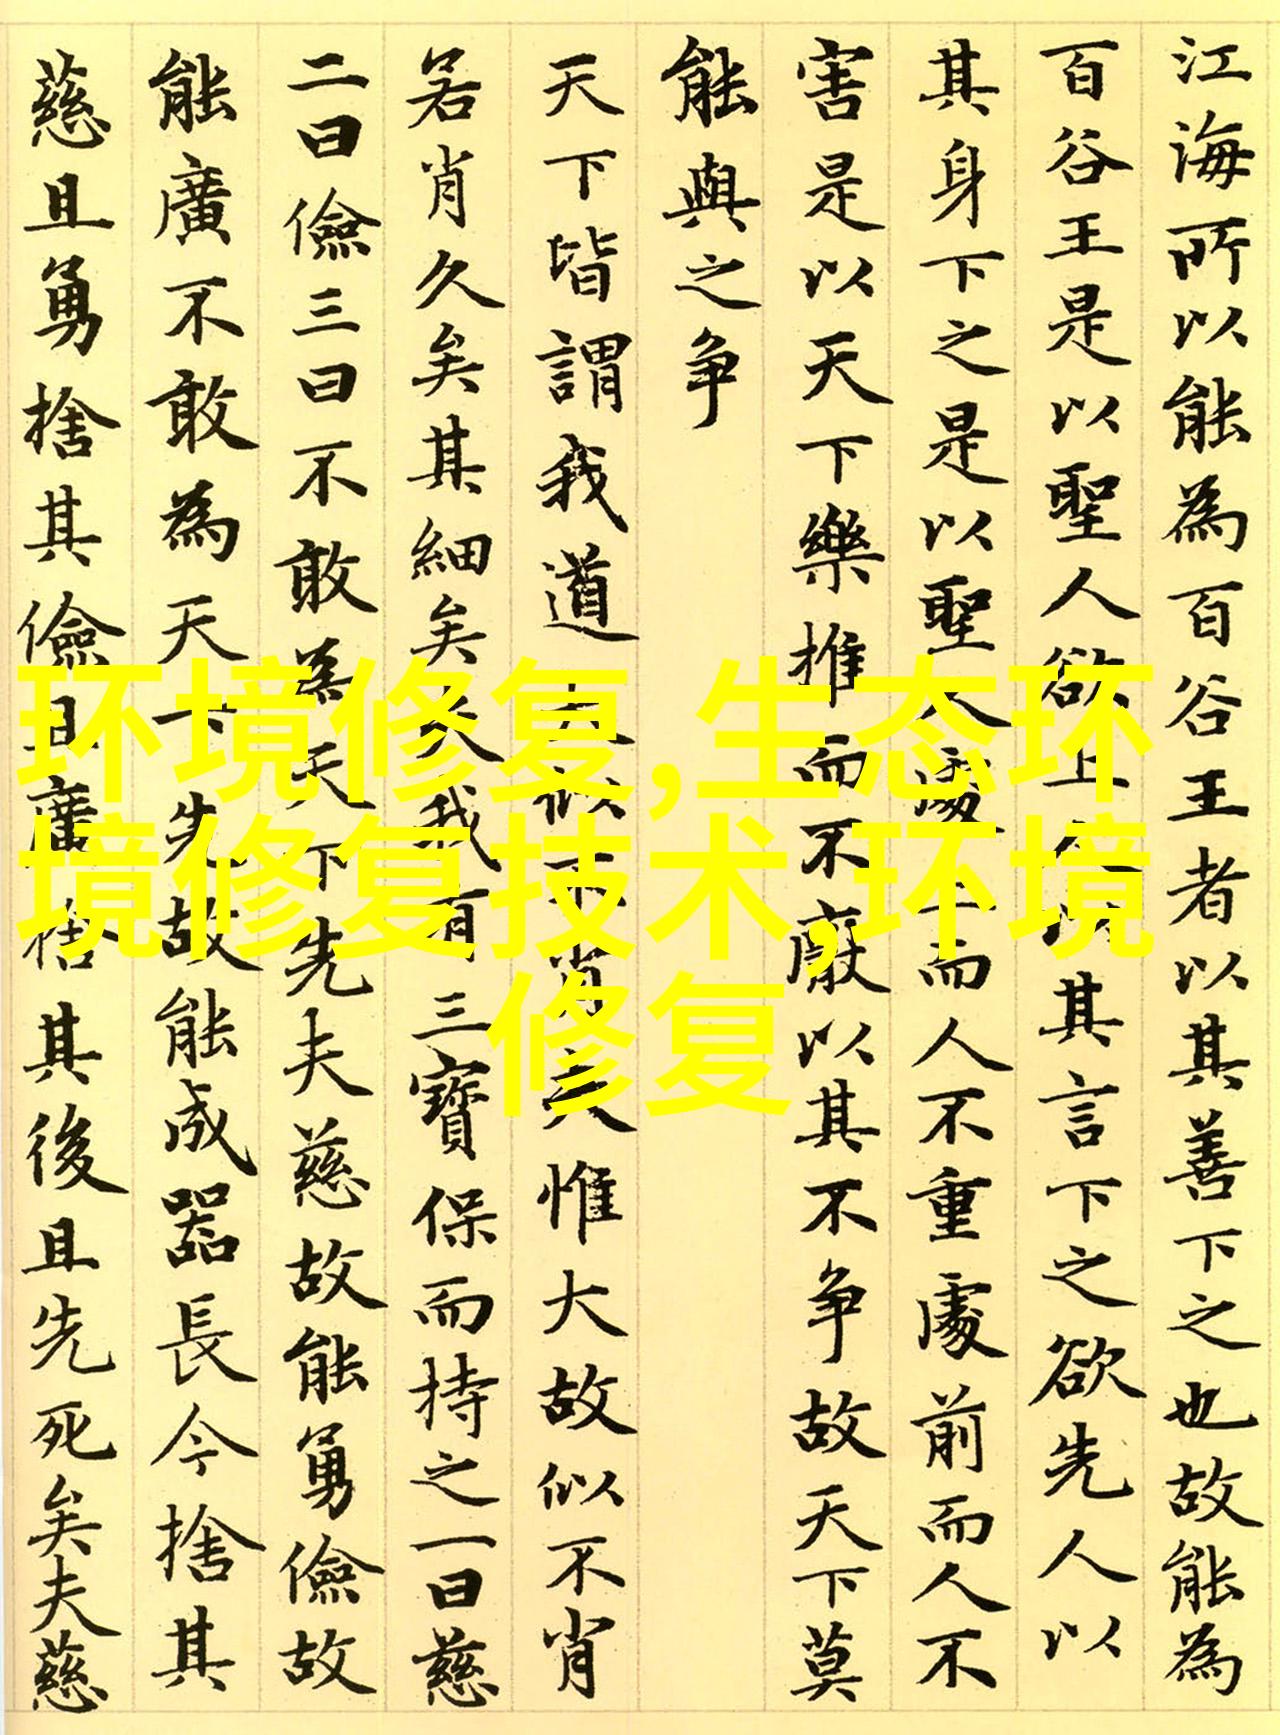 江海所以能為百谷王者以其善下之也故能為
百谷王是以聖人欲上人以其言下之欲先人以
其身下之是以聖人處上而人不重處前而人不
害是以天下樂推而不厭以其不争故天下莫
能與之争
天下皆謂我道大似不肖夫惟大故似不肖
若肖久矣其細矣夫我有三寶保而持之一曰慈
二曰儉三曰不敢為天下先夫慈故能勇儉故
能廣不敢為天下先故能成器長今捨其
慈且勇捨其儉且廣捨其後且先死矣夫慈
环境修复,生态环
境修复技术,环境
修复